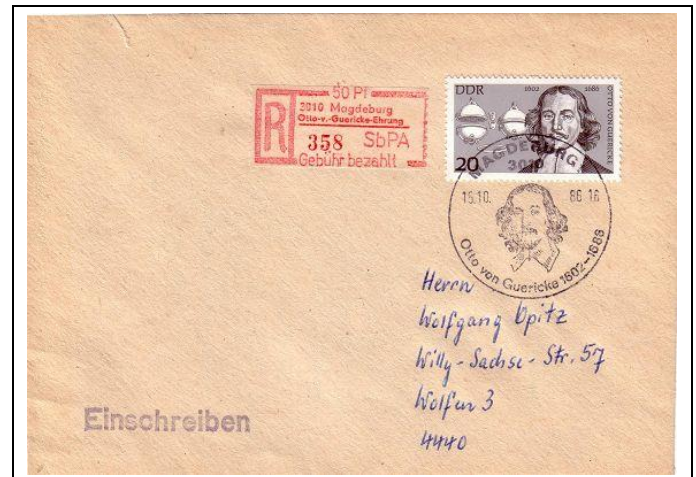 50 Pf
R
3010 Magdeburg
Otto-v.-Guericke-Ehrung
358 SbPA
Gebühr bezahlt
DDR 1602 1686
OTTO VON GUERICKE
20
MAGDEBURG
3010
15.10. 86 16
Otto von Guericke 1602-1686
Herrn
Wolfgang Opitz
Willy-Sachse-Str. 57
Wolfen 3
4440
Einschreiben